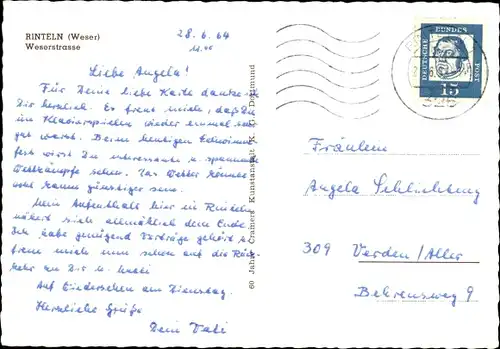 RINTELN (Weser)
Weserstrasse
28.6.64
Liebe Angela!
Für Deine liebe Karte danke
Dir herzlich. Es freut mich, daß Du
im Klavierspielen wieder einmal
gut warst. Beim heutigen Schwimm-
fest wirst Du interessante u. spannende
Wettkämpfe sehen. Das Wetter könnte
wohl kaum günstiger sein.
Mein Aufenthalt hier in Rinteln
nähert sich allmählich dem Ende.
Ich habe genügend Vorträge gehört u.
freue mich nun schon auf die Rück-
kehr zu Dir u.
Auf Wiedersehen am Dienstag.
Herzliche Grüße
Dein Vati
60 Jahre Cramers Kunstanstalt K. G., Dortmund
DEUTSCHE BUNDES POST
15
326
Fräulein
Angela Schlichtung
309 Verden/Aller
Behrensweg 9